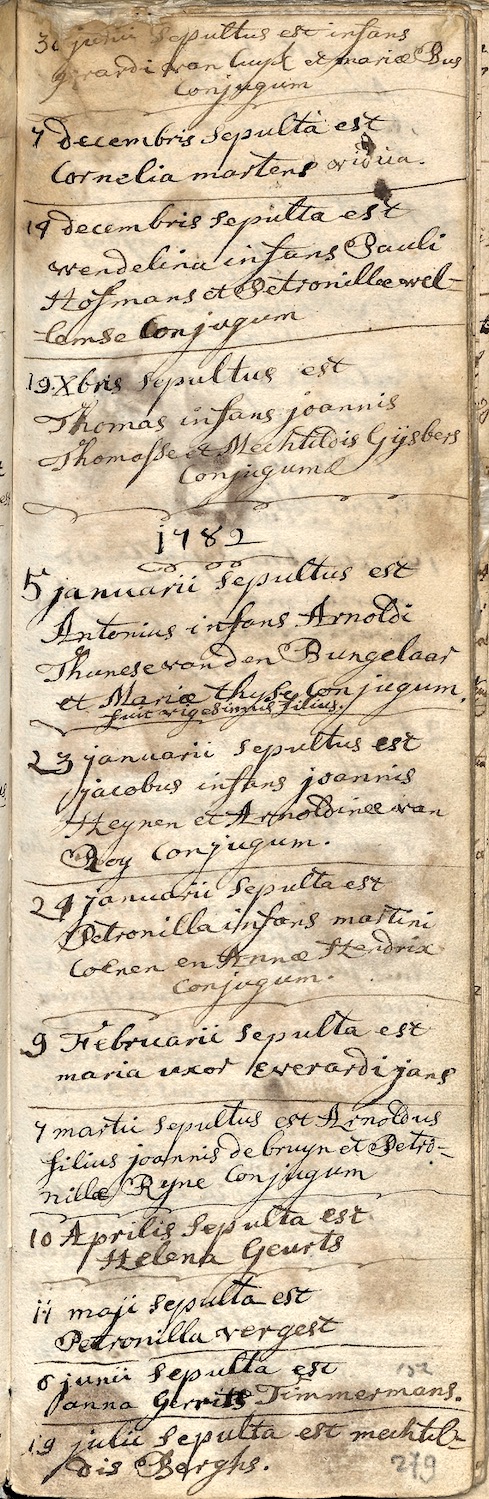 30 junii Sepultus est infans
Gerardi van Cuyk et mariæ Bus
Conjugum
7 decembris Sepulta est
Cornelia martens vidua.
14 decembris Sepulta est
wendelina infans Pauli
Hofmans et Petronillæ wel-
lemse Conjugum
19 Xbris Sepultus est
Thomas infans joannis
Thomasse et Mechtildis Gijsbers
Conjugum
1782
5 januarii Sepultus est
Antonius infans Arnoldi
Thunese van den Bungelaar
et Mariæ thyse Conjugum.
fuit vigesimus filius.
23 januarii Sepultus est
jacobus infans joannis
Heynen et Arnoldinæ van
Roy Conjugum.
24 januarii Sepulta est
Petronilla infans martini
Coenen en Annæ Hendrix
Conjugum.
9 Februarii Sepulta est
maria uxor Everardi jans
7 martii Sepultus est Arnoldus
filius joannis de bruyn et Petro-
nillæ Ryne Conjugum
10 Aprilis Sepulta est
Helena Geurts
11 maji Sepulta est
Petronilla vergest
6 junii Sepulta est
Janna Gerrits Timmermans.
19 julii Sepulta est mechtil-
dis Berghs.
279